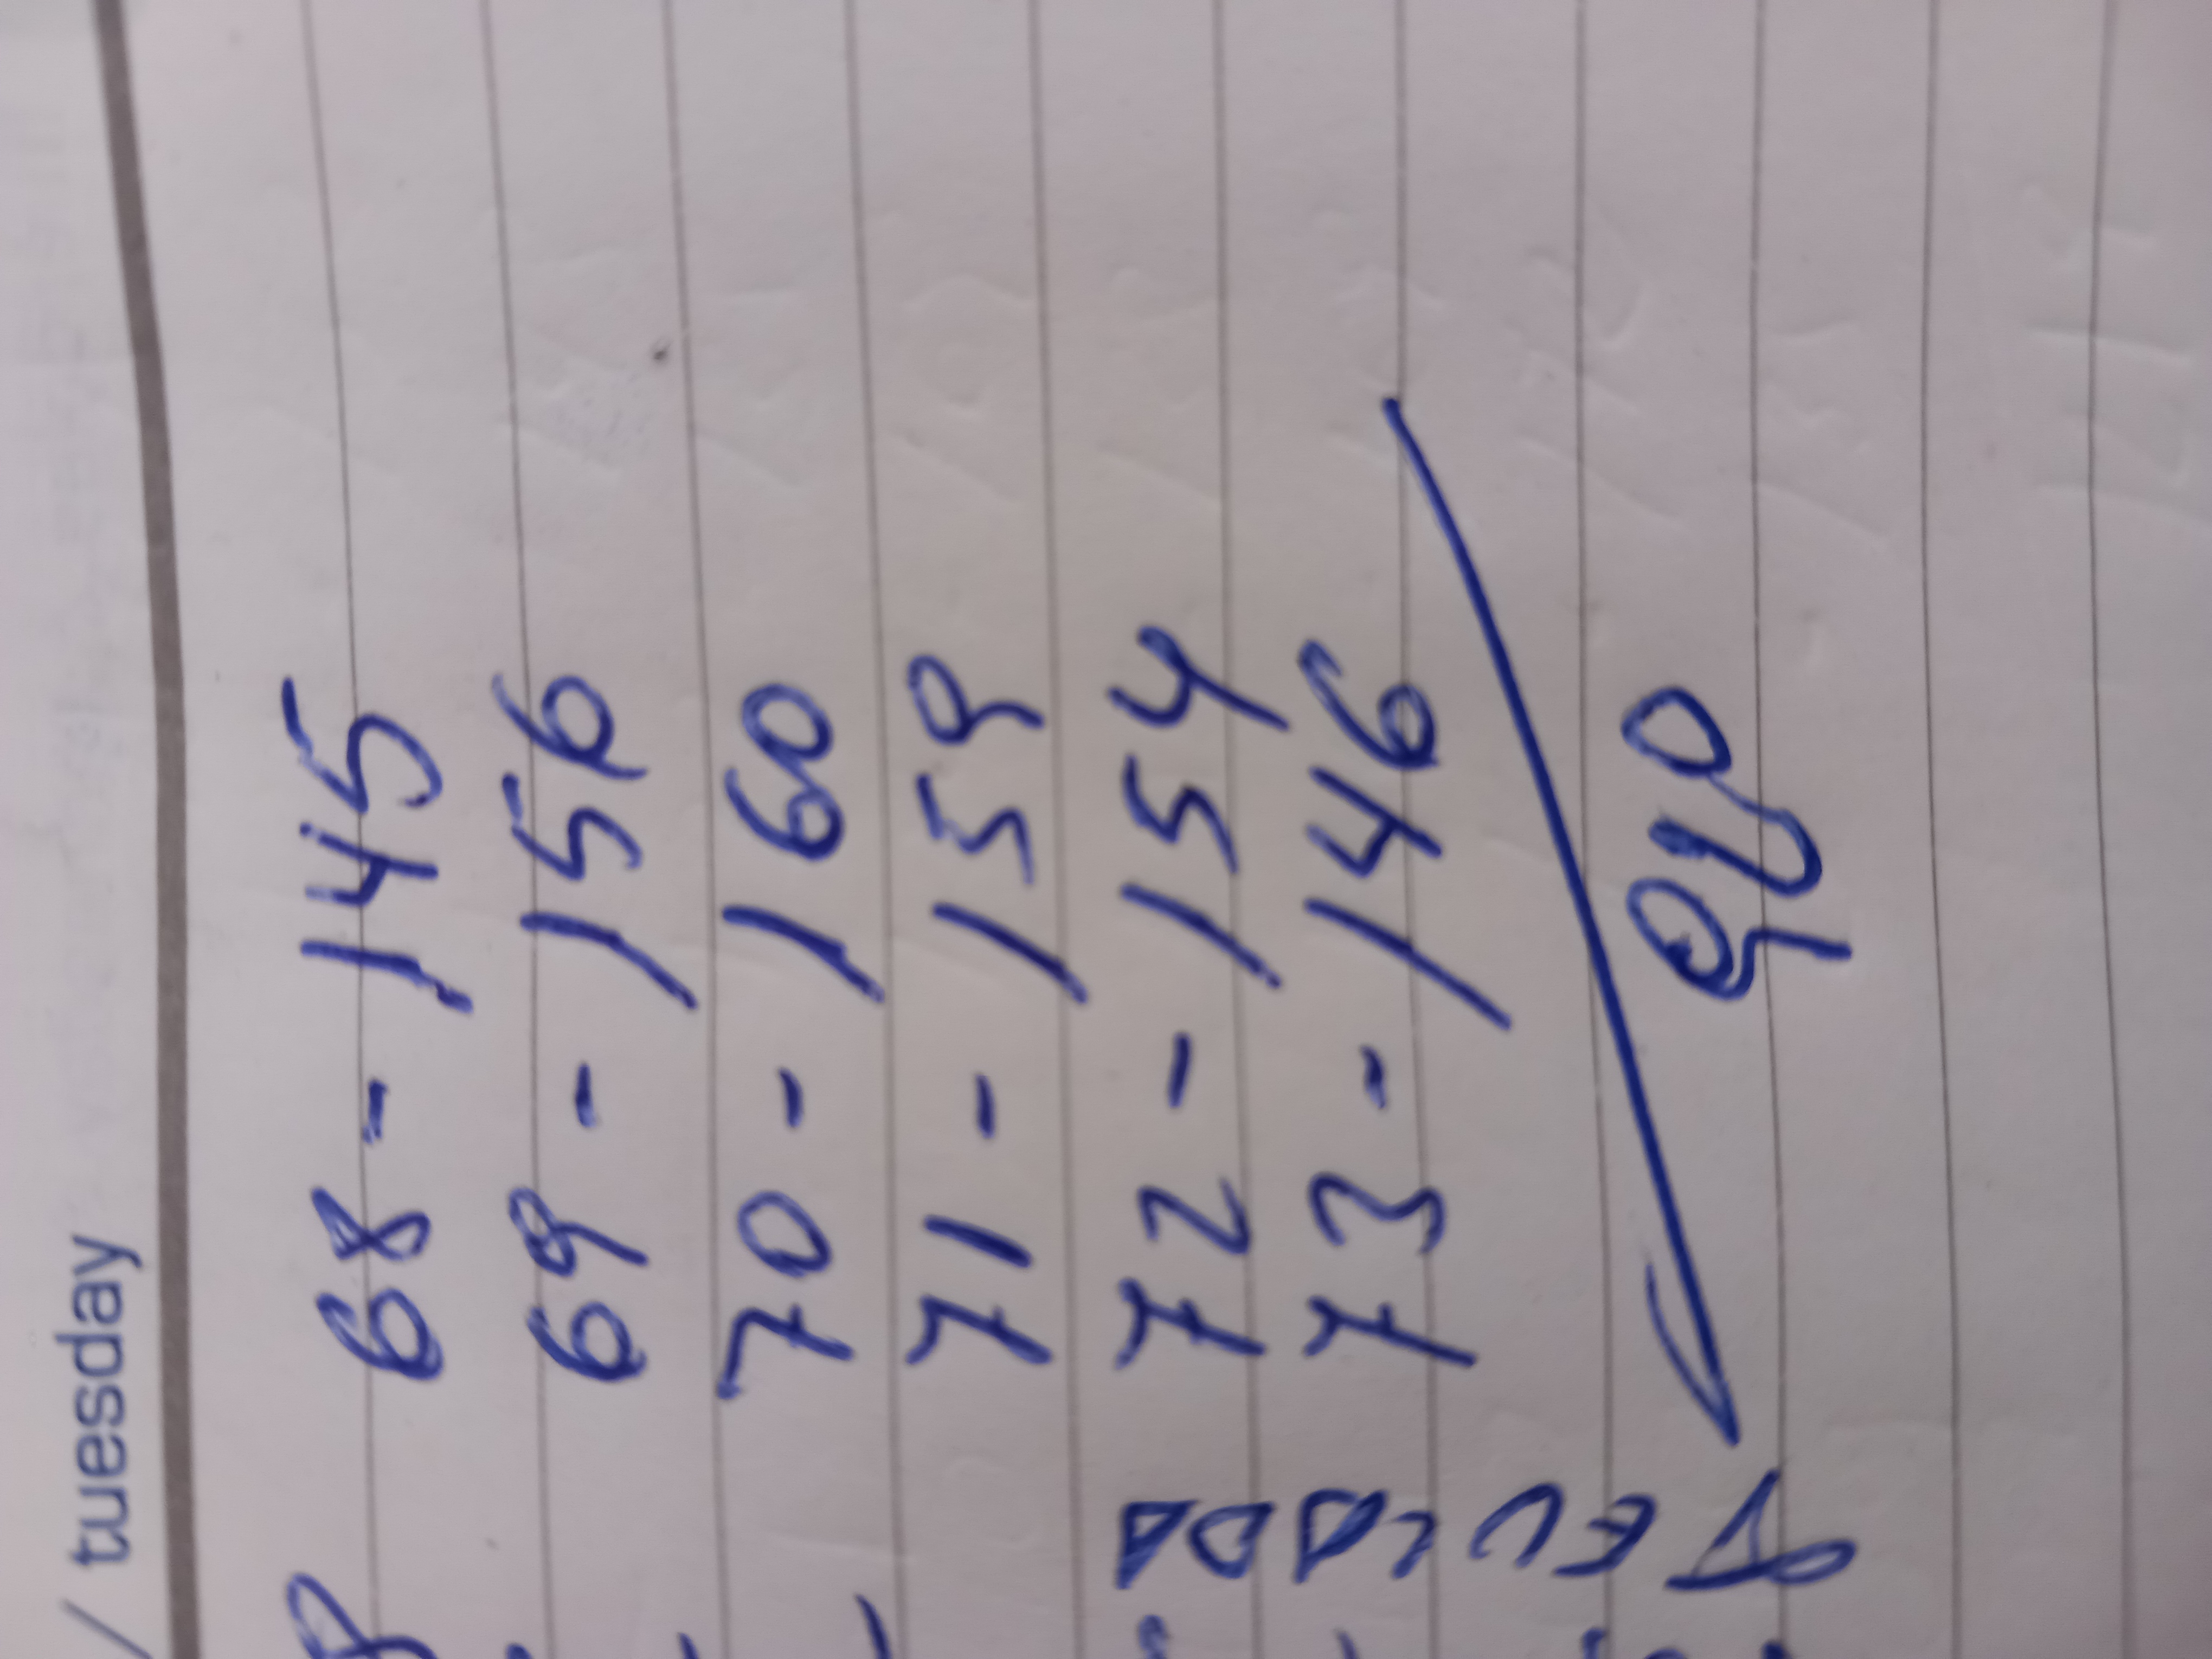 / tuesday
68 - 145
69 - 156
70 - 160
71 - 159
72 - 154
73 - 146